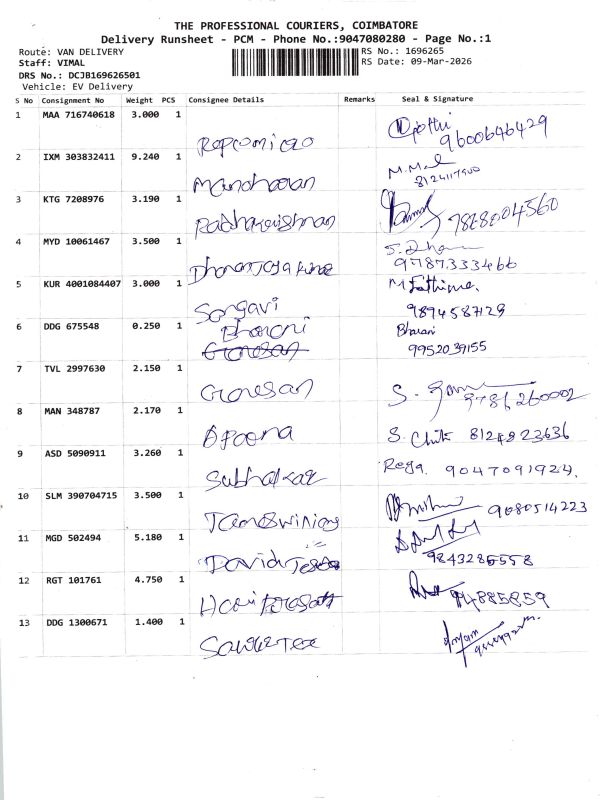 THE PROFESSIONAL COURIERS, COIMBATORE
Delivery Runsheet - PCM - Phone No.:9047080280 - Page No.:1
Route: VAN DELIVERY RS No.: 1696265
Staff: VIMAL RS Date: 09-Mar-2026
DRS No.: DCJB169626501
Vehicle: EV Delivery
S No Consignment No Weight PCS Consignee Details Remarks Seal & Signature
1 MAA 716740618 3.000 1
9600646429
2 IXM 303832411 9.240 1
Manoharan
3 KTG 7208976 3.190 1
Radhakrishnan
4 MYD 10061467 3.500 1 S. Dhana
9787333466
5 KUR 4001084407 3.000 1 M Fathima
Sangavi 9894587129
6 DDG 675548 0.250 1 Dharani Bharani
Ganesan 9952039155
7 TVL 2997630 2.150 1
Ganesan 9786260002
8 MAN 348787 2.170 1
Apoorva S. 8124823636
9 ASD 5090911 3.260 1
Subhakar Rega. 9047091924.
10 SLM 390704715 3.500 1
9080514223
11 MGD 502494 5.180 1
David 9843286558
12 RGT 101761 4.750 1
Hari Prasath
13 DDG 1300671 1.400 1